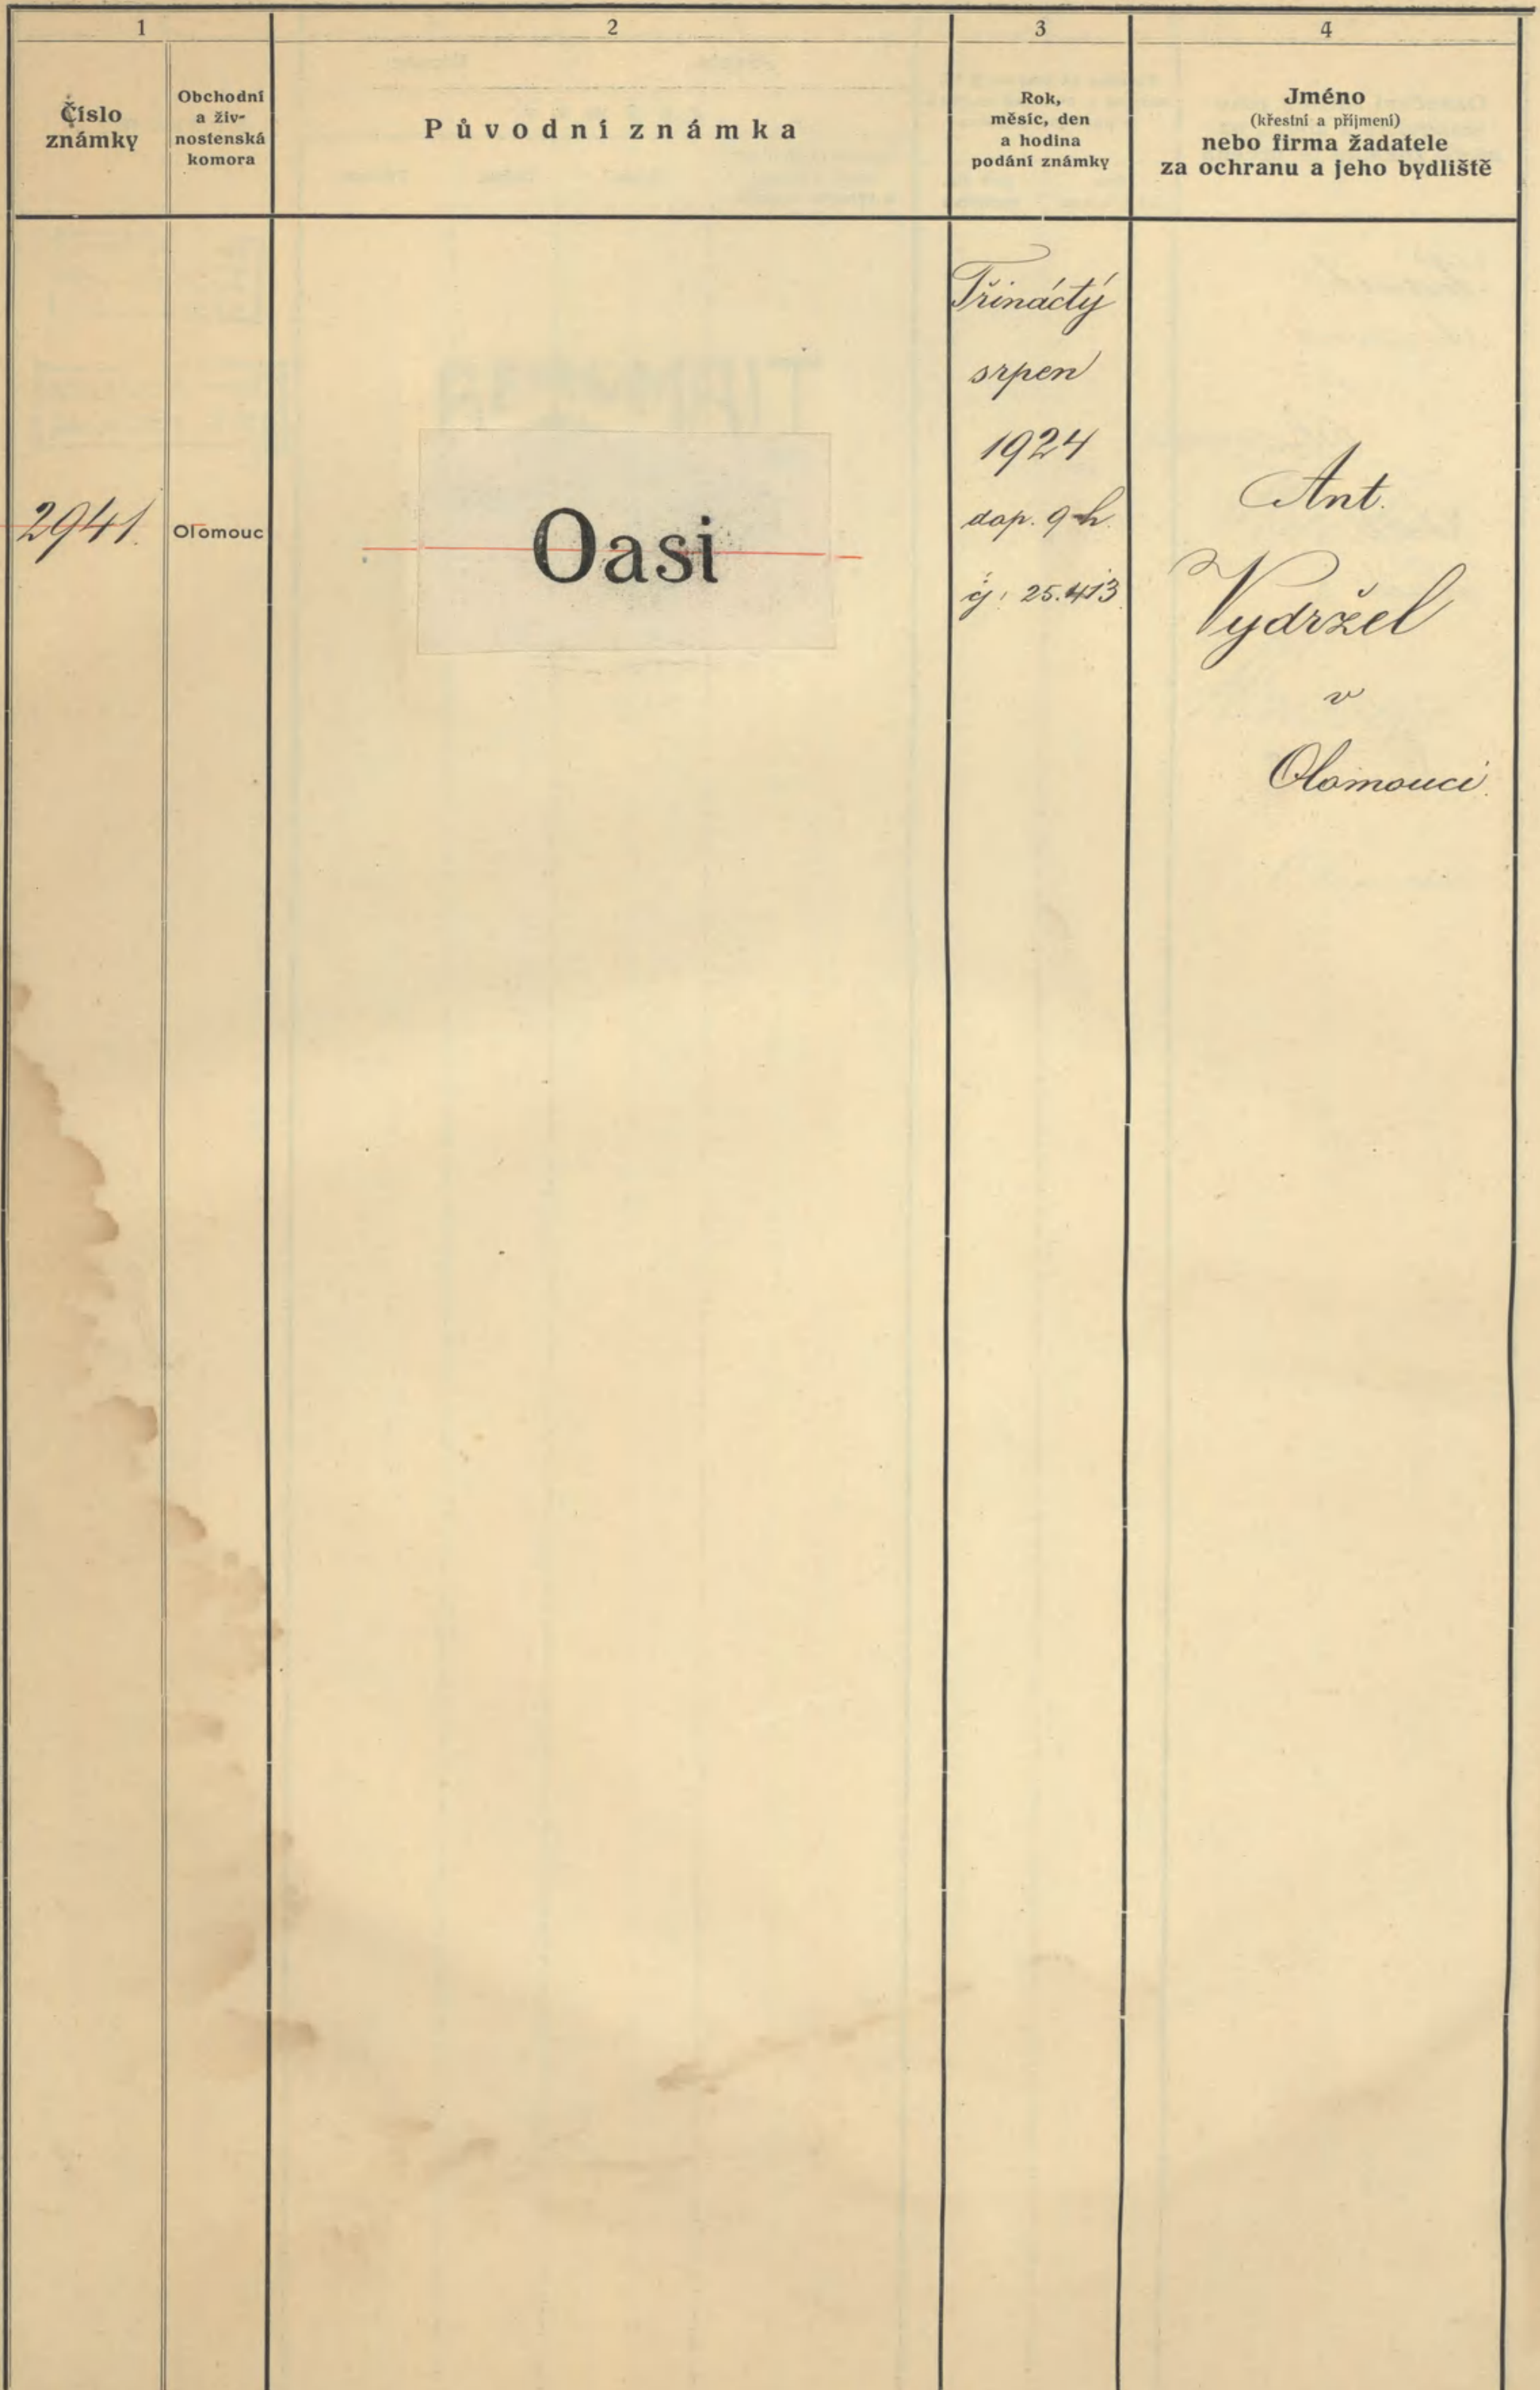 1
2
3
4
Číslo
známky
Obchodní
a živ-
nostenská
komora
Původní známka
Rok,
měsíc, den
a hodina
podání známky
Jméno
(křestní a příjmení)
nebo firma žadatele
za ochranu a jeho bydliště
2941.
Olomouc
Oasi
Třináctý
srpen
1924
dop. 9 h.
čj: 25.413
Ant.
Vydržel
v
Olomouci.